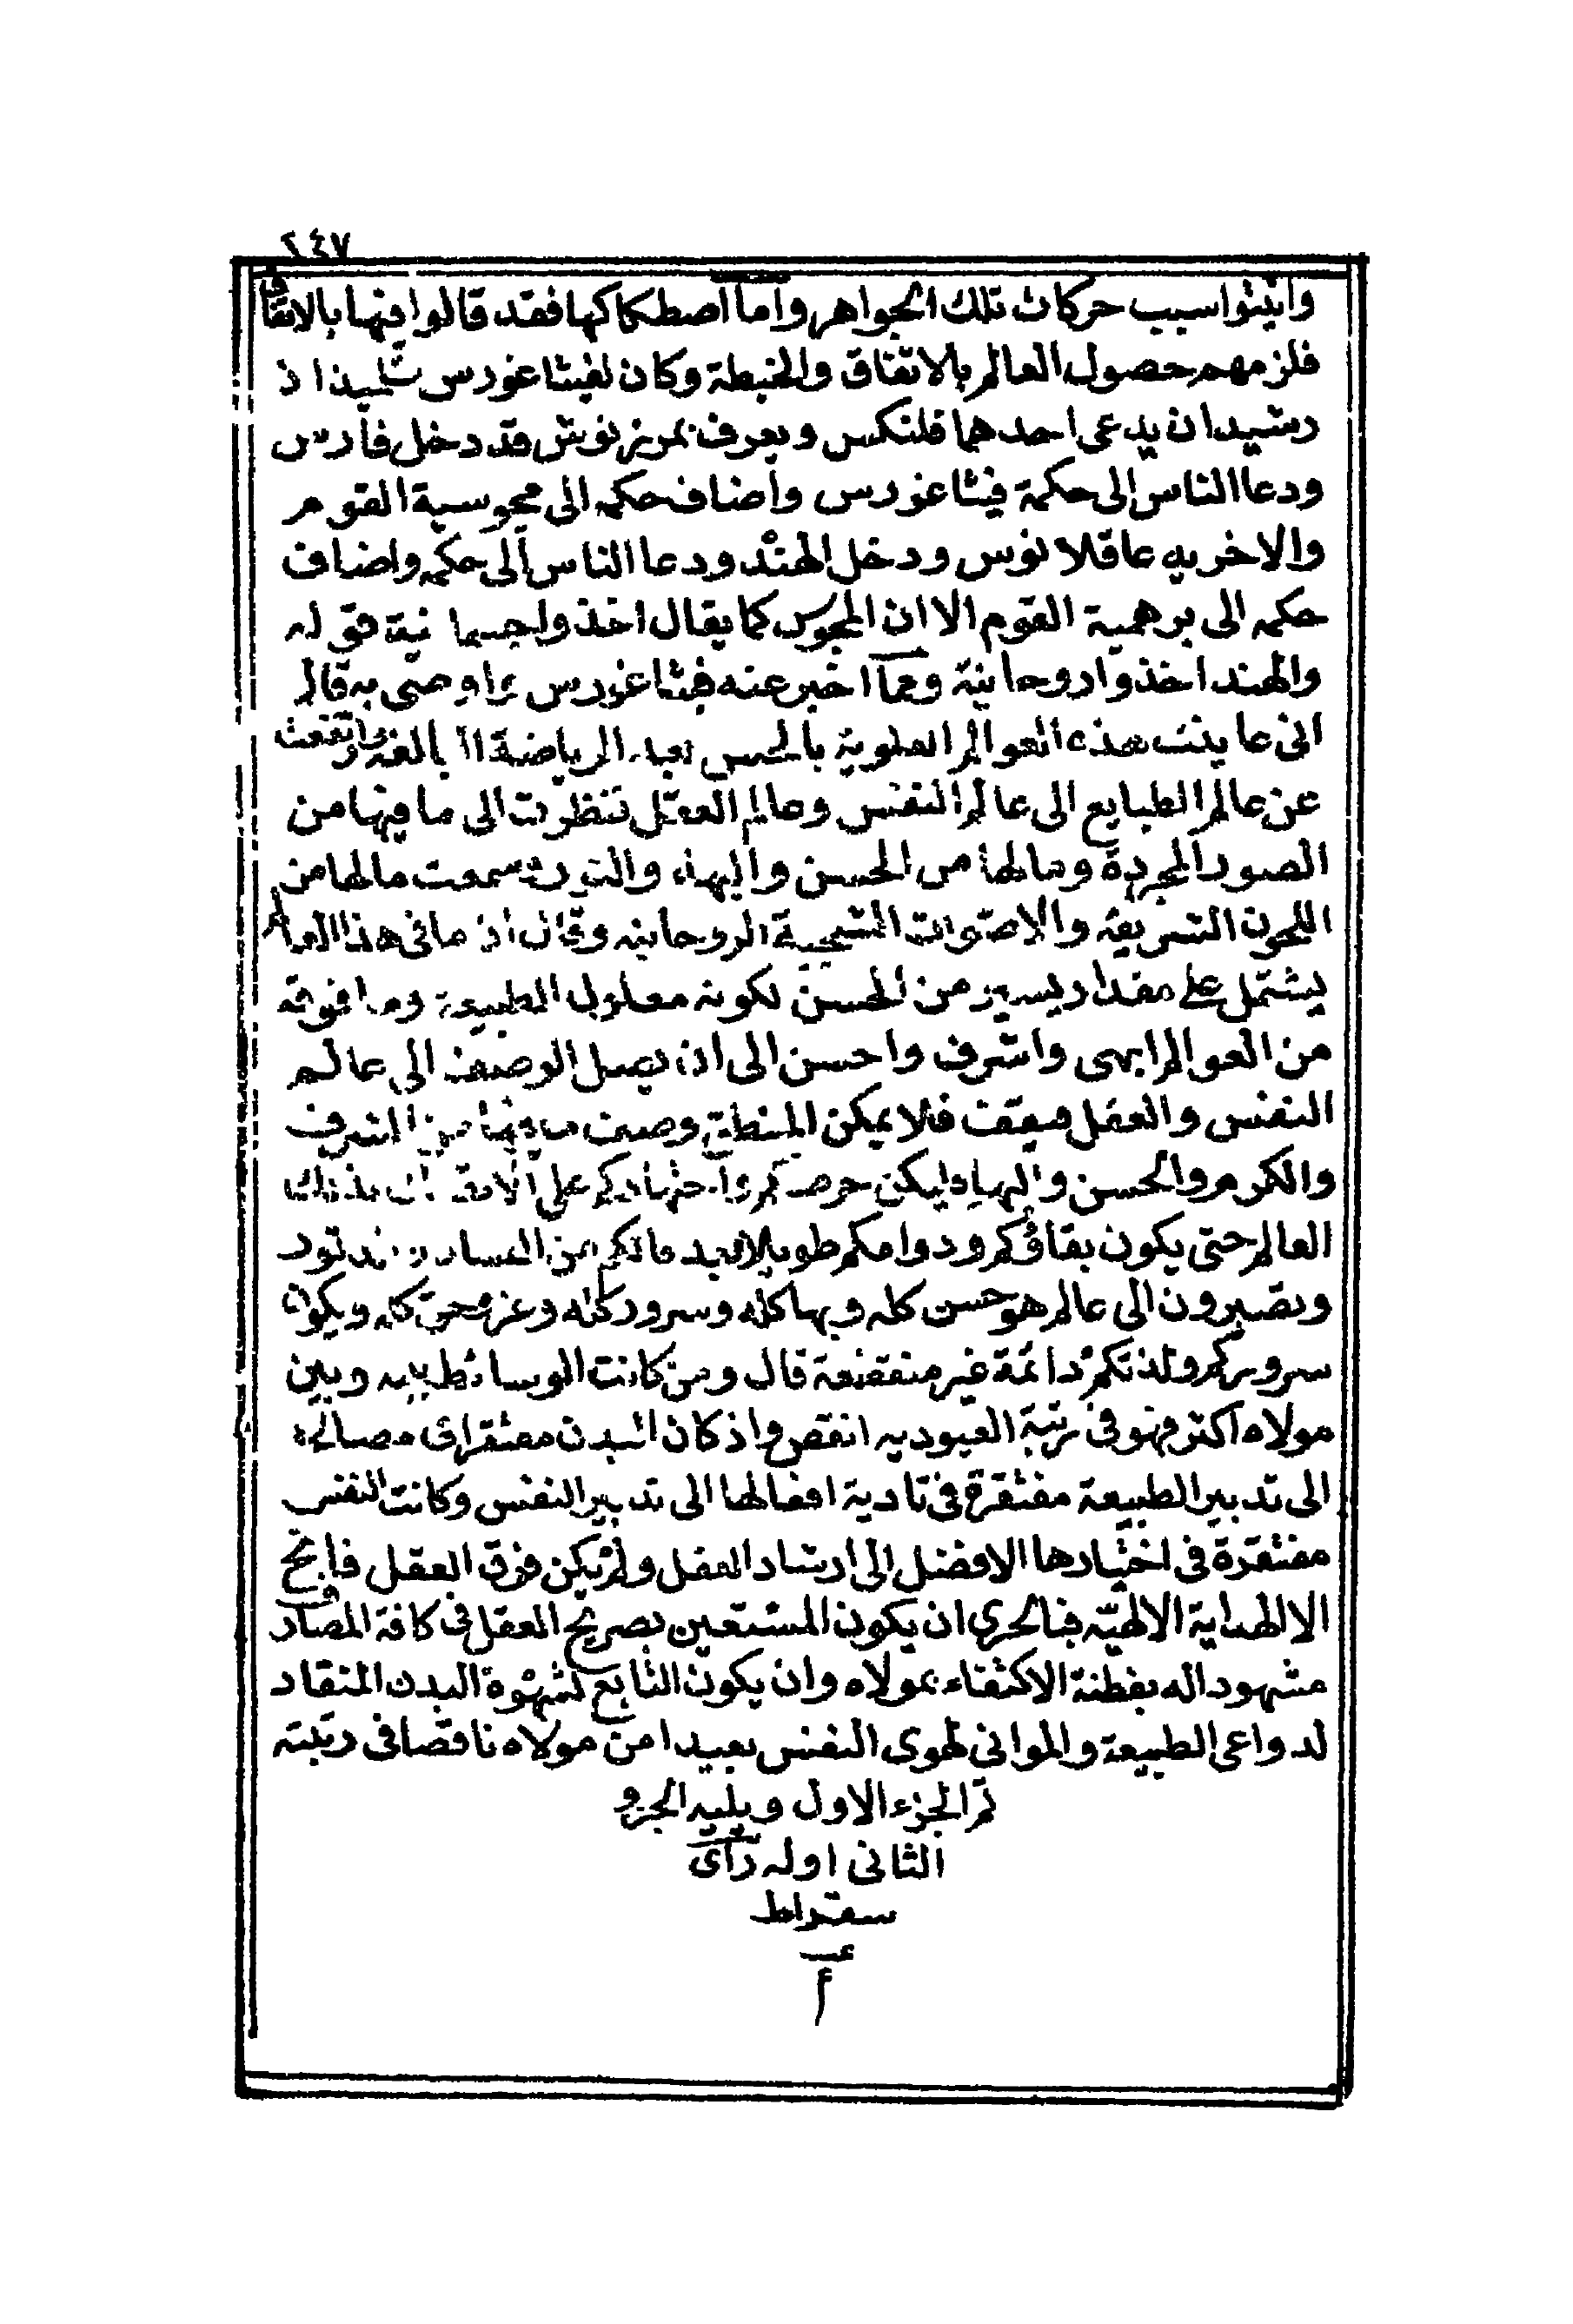 ٢٤٧
واثبتوا سبب حركات تلك الجواهر وأما اصطكاكها فقد قالوا فيها بالاتفاق
فلزمهم حصول العالم بالاتفاق والخبطة وكان لفيثاغورس تلميذان
رشيدان يدعى احدهما فلنكس ويعرف بمرزنوش قد دخل فارس
ودعا الناس الى حكمة فيثاغورس واضاف حكمه الى مجوسية القوم
والاخر يه عا قلانوس ودخل الهند ودعا الناس الى حكمه واضاف
حكمه الى برهمية القوم الا ان المجوس كما يقال اخذوا جسمانية قوله
والهند اخذوا روحانية ومما اخبر عنه فيثاغورس واوصى به قال
انى عاينت هذه العوالم العلوية بالحس بعد الرياضة البالغة وارتفعت
عن عالم الطبايع الى عالم النفس وعالم العقل فنظرت الى ما فيها من
الصور المجردة ومالها من الحسن والبهاء والنور وسمعت مالها من
اللحون الشريفه والاصوات الشجية الروحانيه وقال ان ما فى هذا العالم
يشتمل على مقدار يسير من الحسن لكونه معلول الطبيعة وما فوقه
من العوالم ابهى واشرف واحسن الى ان يصل الوصف الى عالم
النفس والعقل فيقف فلا يمكن المنطق وصف ما فيها من الشرف
والكرم والحسن والبهاء فليكن حرصكم واجتهادكم على الاتصال بذلك
العالم حتى يكون بقاؤكم ودوامكم طويلا بعد مالكم من الفساد والدثور
وتصيرون الى عالم هو حسن كله وبها كله وسرور كله وعز وحق كله ويكون
سروركم ولذتكم دائمة غير منقطعة قال ومن كانت الوسائط بينه وبين
مولاه اكثر فهو فى رتبة العبوديه انقص واذ كان البدن مفتقرا فى مصالحه
الى تدبير الطبيعة مفتقرة فى تادية افعالها الى تدبير النفس وكانت النفس
مفتقرة فى اختيارها الافضل الى ارشاد العقل ولم يكن فوق العقل فاتح
الا الهداية الالهيّه فبالحرى ان يكون المستعين بصريح العقل فى كافة المصارف
مشهودا له بفطنة الاكتفاء بمولاه وان يكون التابع لشهوة البدن المنقاد
لدواعى الطبيعة والموانى لهوى النفس بعيدا من مولاه ناقصا فى رتبته
تم الجزء الاول ويليه الجزو
الثانى اوله رأى
سقراط